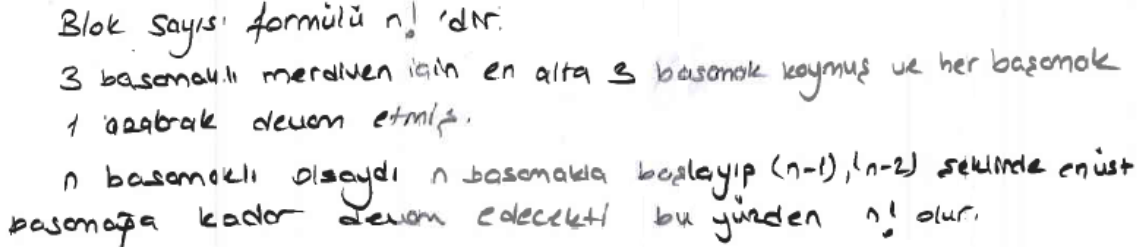 Blok sayısı formülü n! 'dir.
3 basamaklı merdiven için en alta 3 basamak koymuş ve her basamak
1 azalarak devam etmiş.
n basamaklı olsaydı n basamakla başlayıp (n-1), (n-2) şeklinde en üst
basamağa kadar devam edecekti bu yüzden n! olur.